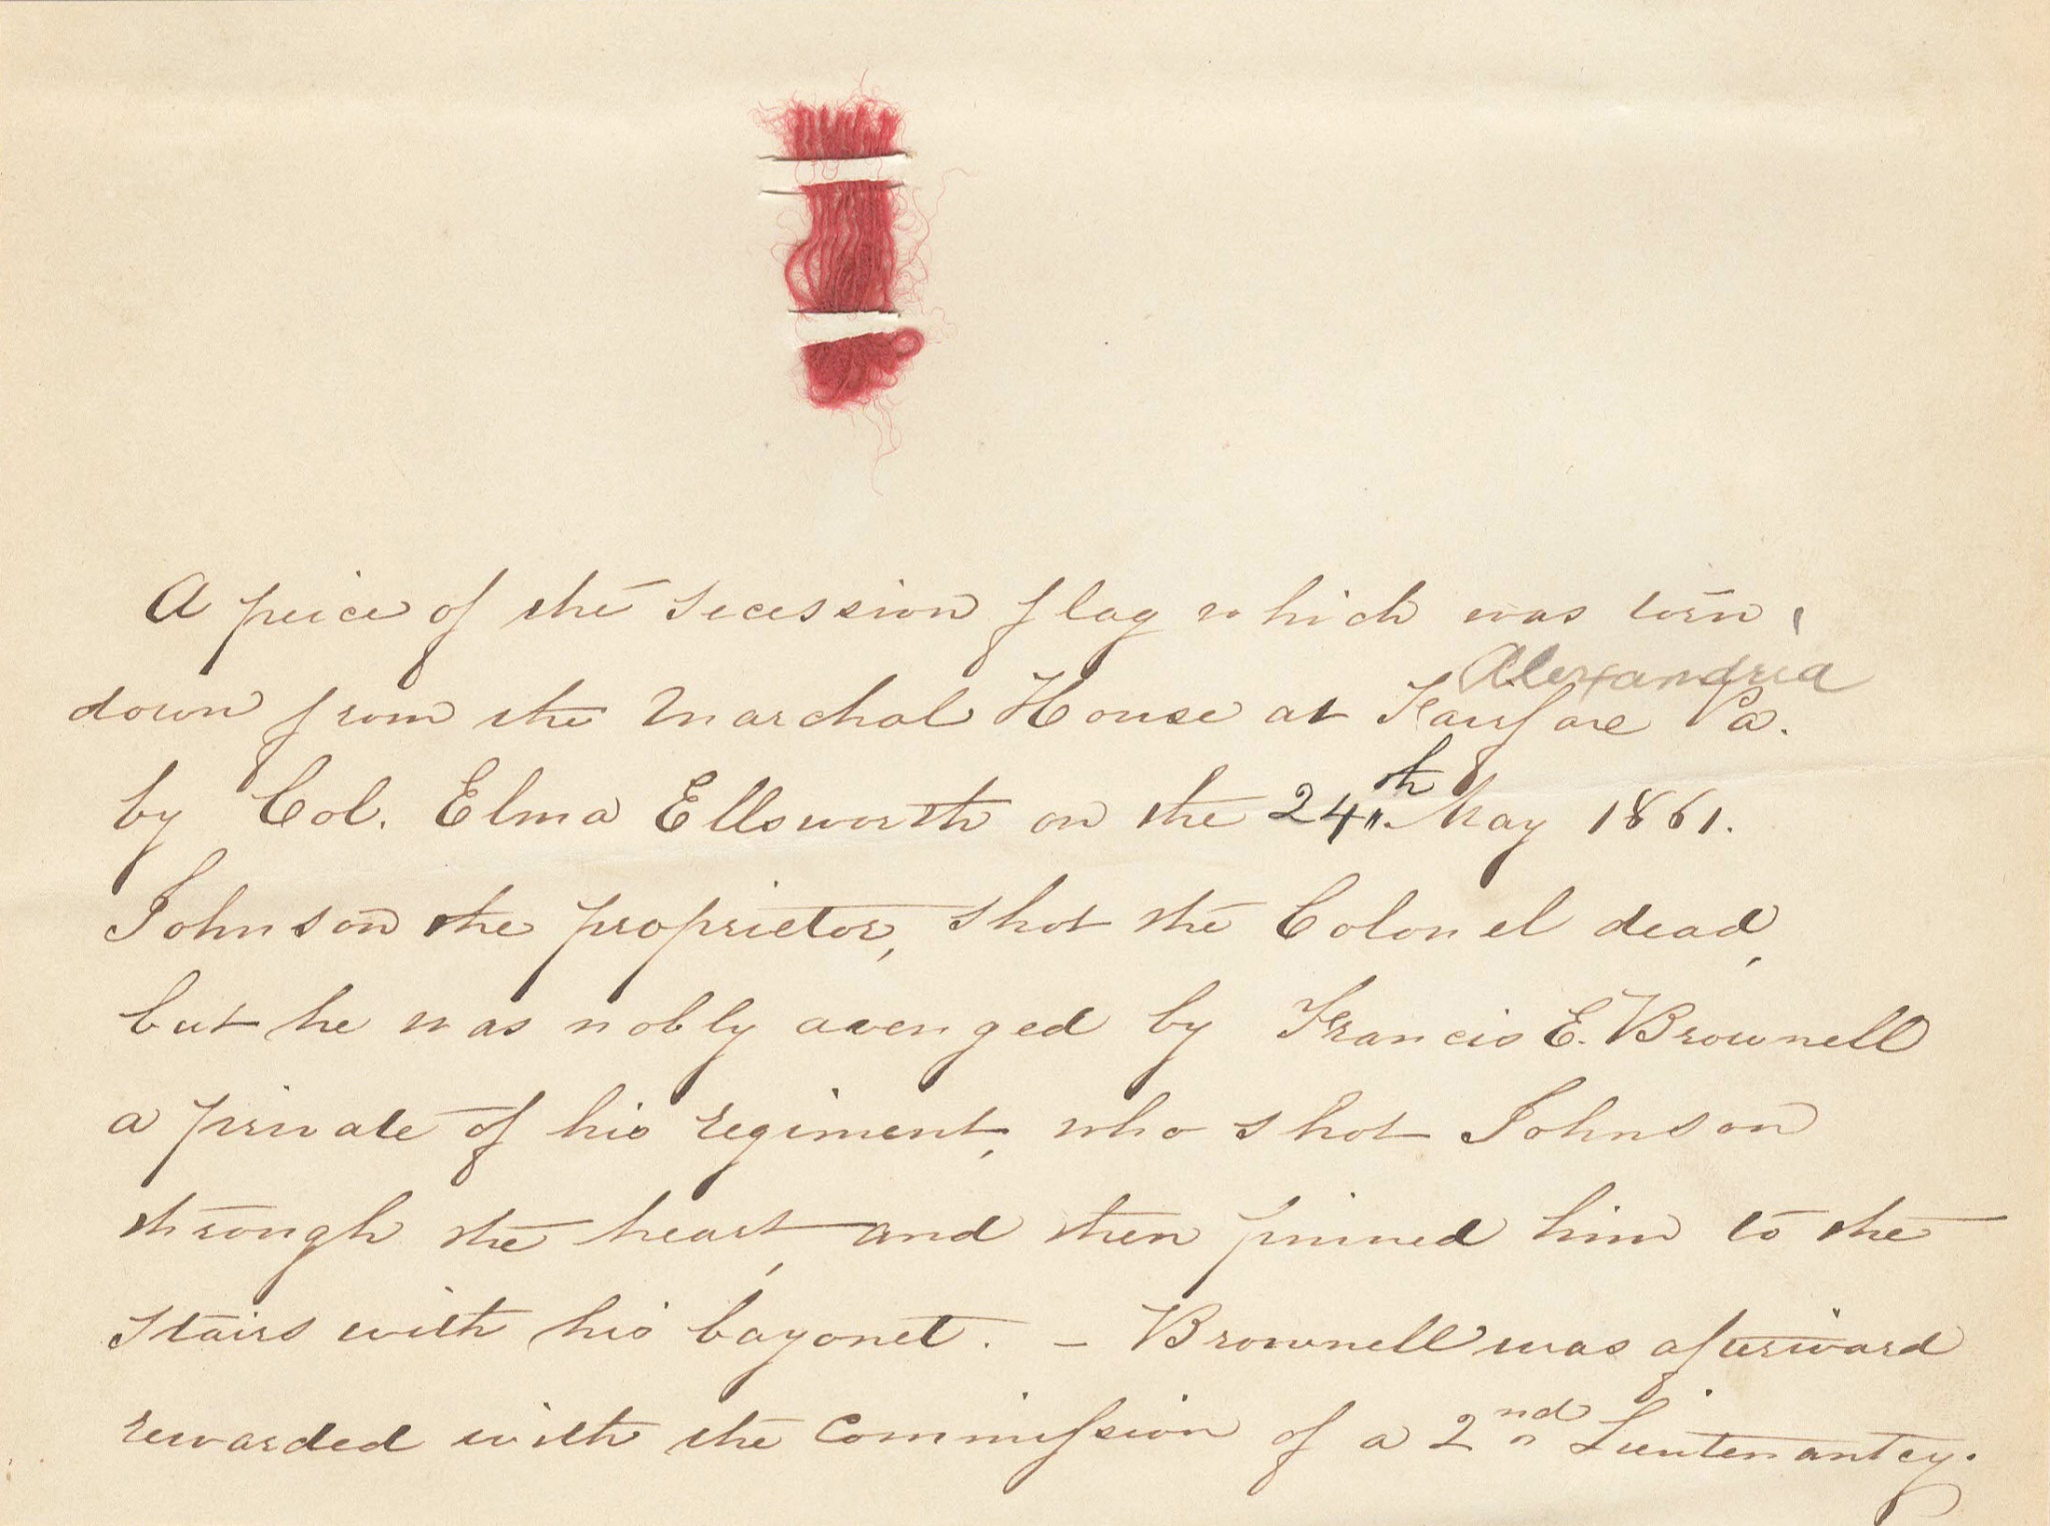 A peice of the secession flag which was torn
Alexandria
down from the Marchal House at Fairfax Va.
by Col. Elma Ellsworth on the 24th May 1861.
Johnson the proprietor, shot the Colonel dead,
but he was nobly avenged by Francis E. Brownell
a private of his regiment, who shot Johnson
through the heart, and then pinned him to the
stairs with his bayonet. – Brownell was afterward
rewarded with the Commission of a 2nd Lieutenantcy.